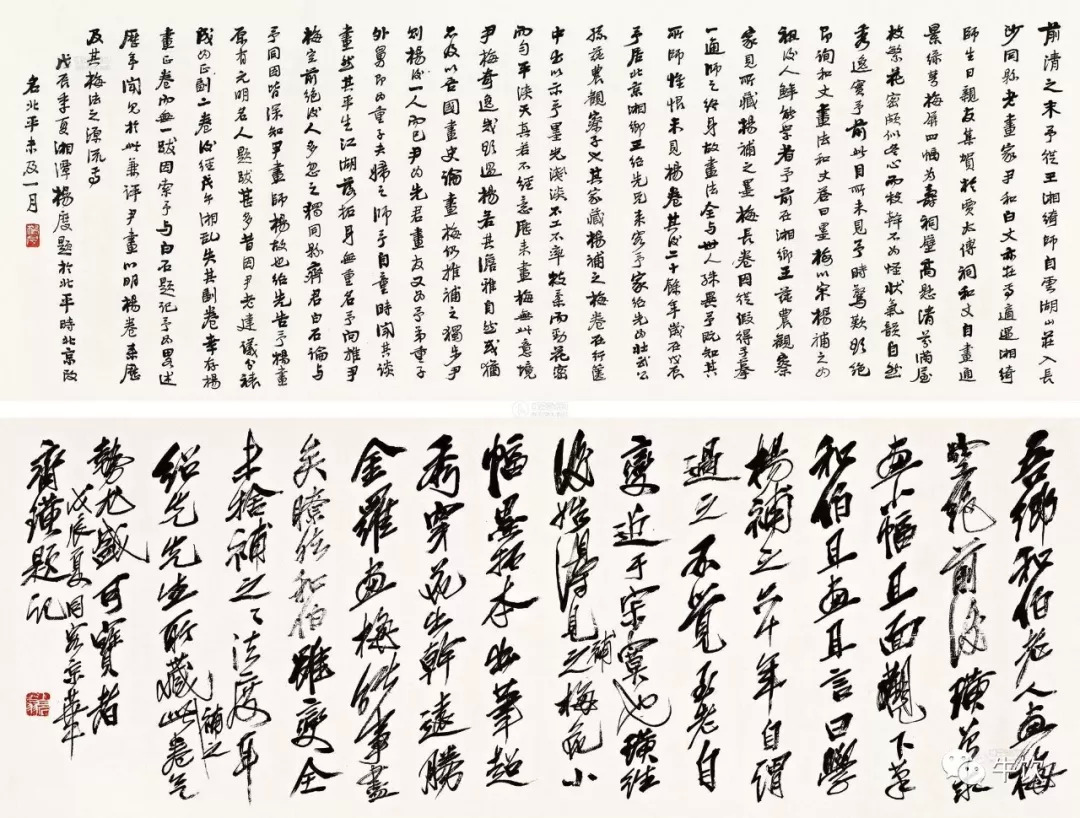 前清之末予從王湘綺師自雲湖山莊入長
沙同縣老畫家尹和白丈亦在焉適遇湘綺
師生日親友集賀於賈太傅祠和丈自畫通
景綠萼梅屏四幅為壽祠壁高懸清芬滿屋
枝繁花密頗似冬心而枝幹不為怪狀氣韻自然
秀逸實予前此目所未見予時驚歎以絕
即詢和丈畫法和丈答曰墨梅以宋楊補之為
祖後人鮮能學者予前在湘鄉王薳農觀察
家見所藏楊補之墨梅長卷因從假得手摹
一通師之終身故畫法全與世人殊異予既知其
所師惟恨未見楊卷其後二十餘年歲在戊辰
予居北京湘鄉王紹先兄來客予家紹先為壯武公
孫薳農觀察子也其家藏楊補之梅卷在行篋
中出以示予墨光淺淡不工不率枝柔而勁花密
而勻平淡天真若不經意歷來畫梅無此意境
尹梅奇逸或頗過楊若其澹雅自然或猶
不及以吾國畫史論畫梅仍推補之獨步尹
則楊後一人而已尹為先君畫友又為予弟重子
外舅即為重子夫婦之師予自童時聞其談
畫然其平生江湖落拓身無重名予向推尹
梅空前絕後人多忽之獨同縣齊君白石論與
予同因皆深知尹畫師楊故也紹先告予楊畫
原有元明名人題跋甚多昔因尹老建議分裱
成為正副二卷後經戊午湘亂失其副卷幸存楊
畫正卷而無一跋因索予與白石題記予為略述
歷年聞見於此兼評尹畫以明楊卷系歷
及其梅法之源流焉
戊辰季夏湘潭楊度題於北平時北京改
名北平未及一月
吾鄉和伯老人畫梅
空絕前後璜曾求
畫小幅且面觀下筆
和伯且畫且言曰學
楊補之六十年自謂
過之不覺予老自
變近于宋冥也璜往
後始得見補之梅花小
幅墨拓本出筆超
秀穿花出幹遠勝
金羅畫梅能事盡
矣瞭然和伯雖變全
未捨補之之法度耳
紹先先生所藏補之此卷氣
勢尤盛可寶者
戊辰夏同客京華
齊璜題記